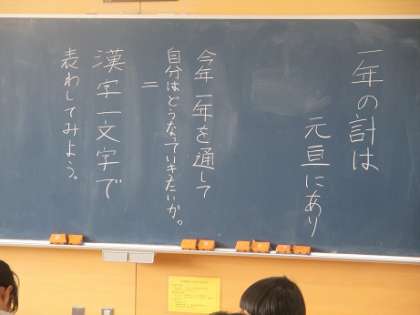 一年の計は
元旦にあり
今年一年を通して
自分はどうなっていきたいか。
=
漢字一文字で
表わしてみよう。